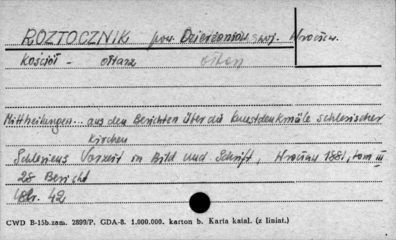 ROZTOCZNIK pow. Dzierżoniów, woj. Wrocław.
Kościół - ołtarz ołtarz
Mittheilungen... aus den Berichten über die Kunstdenkmäle schlesischer
Kirchen
Schlesiens Vorzeit in Bild und Schrift, Wrocław 1881, tom III
28 Bericht
str. 42
CWD B-15b.zam. 2899/P. GDA-8. 1.000.000. karton b. Karta katal. (z liniat.)